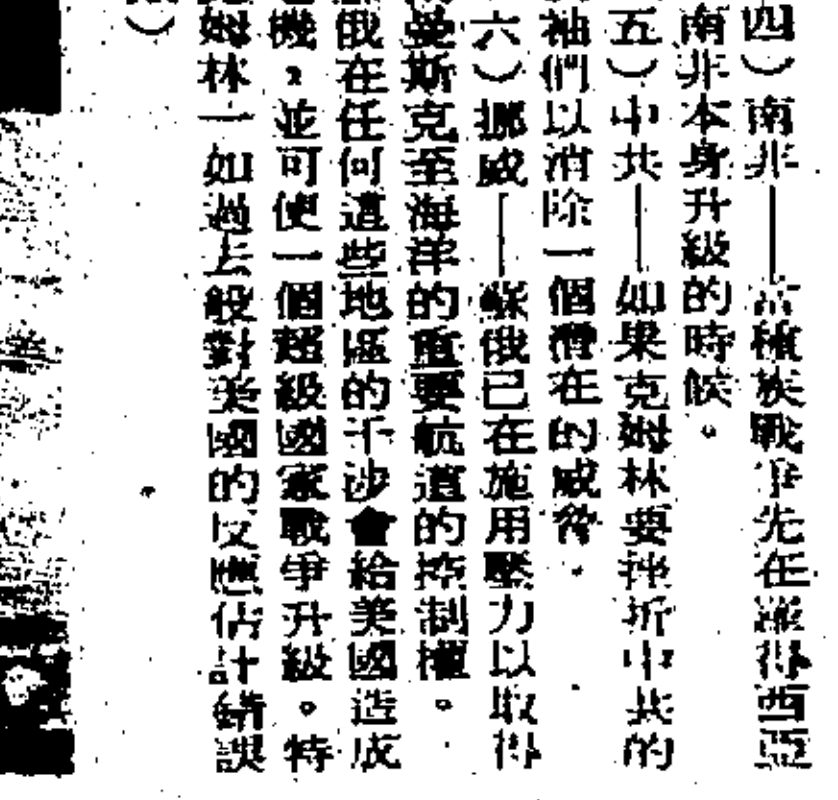 四）南非——當種族戰爭先在羅得西亞
南非本身升級的時候。
五）中共——如果克姆林要挫折中共的
袖們以消除一個潛在的威脅。
六）挪威——蘇俄已在施用壓力以取得
曼斯克至海洋的重要航道的控制權。
俄在任何這些地區的干涉會給美國造成
機，並可使一個超級國家戰爭升級。特
姆林一如過去般對美國的反應估計錯誤
）